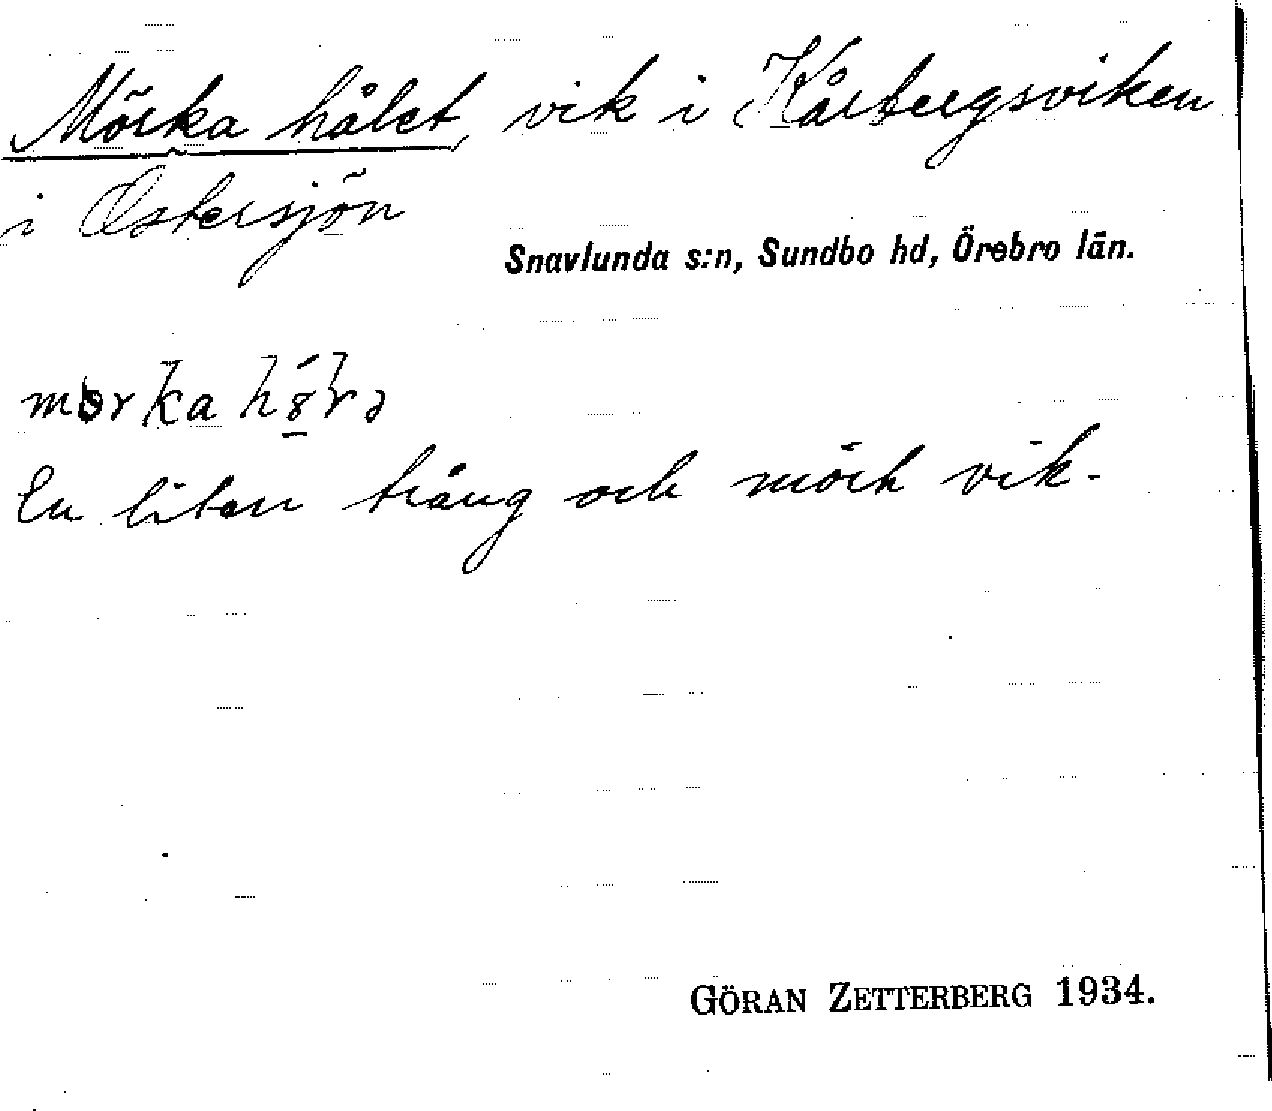 Mörka hålet, vik i Kårbergsviken
i Östersjön
Snavlunda s:n, Sundbo hd, Örebro län.
En liten trång och mörk vik.
GÖRAN ZETTERBERG 1934.